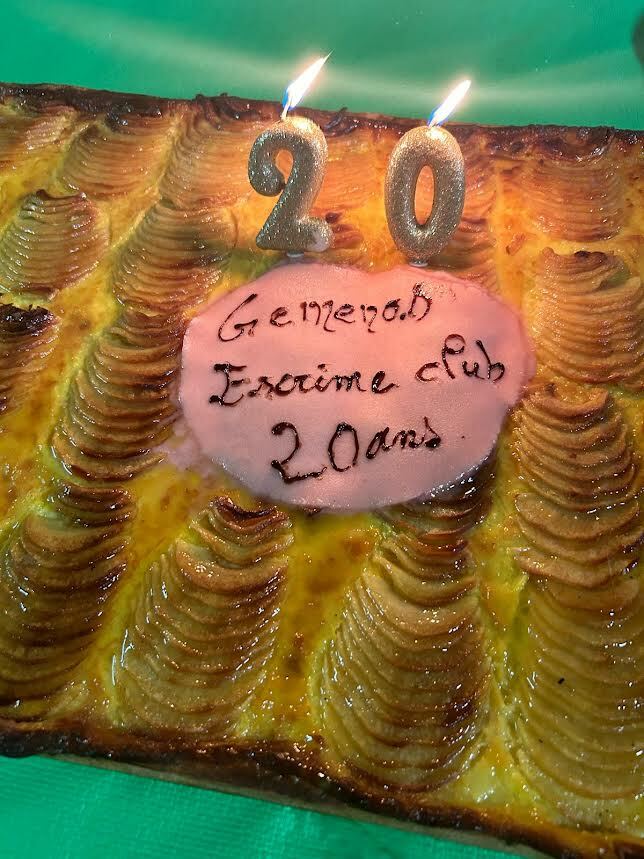 20
Gemenos
Escrime club
20 ans